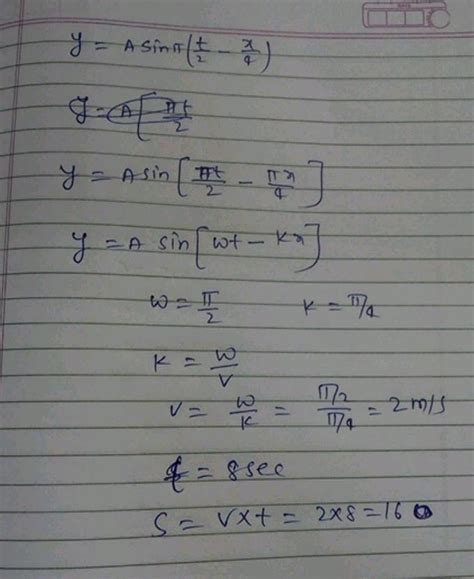 y = A sin π (t/2 − x/4)
y = A [πt/2
y = A sin [πt/2 − πx/4]
y = A sin [wt − kx]
w = π/2 k = π/4
k = w/v
v = w/k = π/2 / π/4 = 2 m/s
t = 8 sec
S = v x t = 2x8 = 16